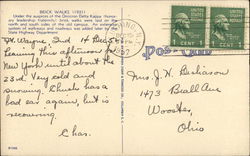 BRICK WALKS (1931)
Under the auspices of the Omicron Delta Kappa (honorary leadership fraternity), brick walks were laid on the north and south sides of the old campus. An extensive system of walkways and roadways was added later by the State Highway Department.
Ft Wayne, Ind 14 Dec 56
Leaving this afternoon for
New York until about the
23rd. Very cold and
snowing. Chuck has a
bad ear again, but is
recovering.
Chas.
Mrs. J. H.
1473 Beall Ave
Wooster,
Ohio
1 CENT 1
1 CENT 1